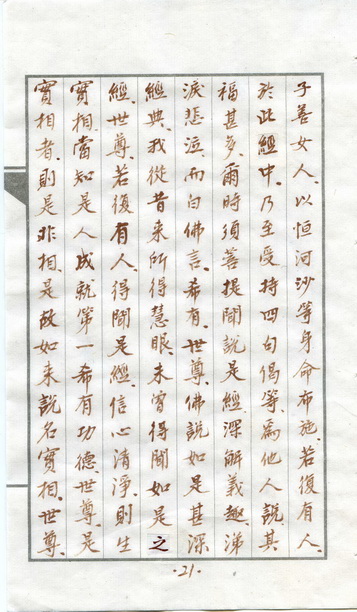 子善女人、以恒河沙等身命布施、若復有人、
於此經中、乃至受持四句偈等、爲他人說、其
福甚多、爾時須菩提聞說是經、深解義趣、涕
淚悲泣、而白佛言、希有、世尊、佛說如是甚深
經典、我從昔來所得慧眼、未曾得聞如是之
經、世尊、若復有人、得聞是經、信心清淨、則生
實相、當知是人成就第一希有功德、世尊、是
實相者、則是非相、是故如来說名實相、世尊、
·21·